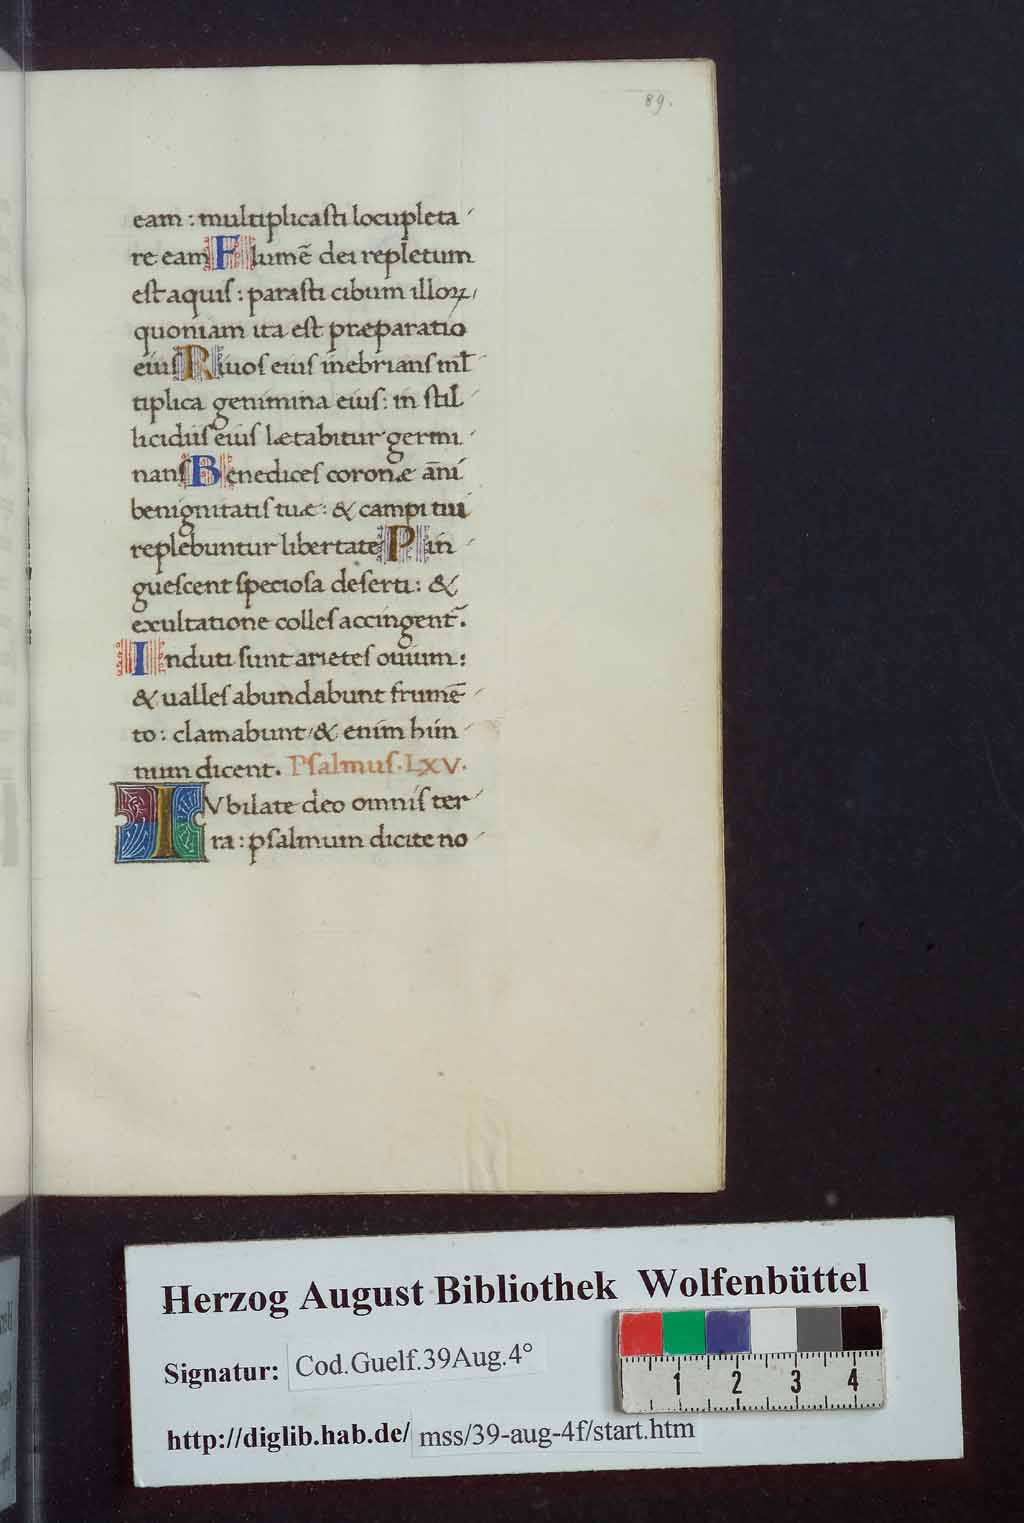 89.
eam : multiplicasti locupleta
re eam Flumē dei repletum
est aquis : parasti cibum illoꝝ,
quoniam ita est præparatio
eius Riuos eius inebrians ml̄
tiplica genimina eius : in stil
licidiis eius lætabitur germi
nans Benedices coronæ āni
benignitatis tuæ : & campi tui
replebuntur libertate Pin
guescent speciosa deserti : &
exultatione colles accingent᷑.
Induti sunt arietes ouium :
& ualles abundabunt frumē
to : clamabunt / & enim him
num dicent. Psalmus . LXV.
IVbilate deo omnis ter
ra : psalmum dicite no
Herzog August Bibliothek Wolfenbüttel
Signatur: Cod.Guelf.39Aug.4°
http://diglib.hab.de/ mss/39-aug-4f/start.htm
1 2 3 4